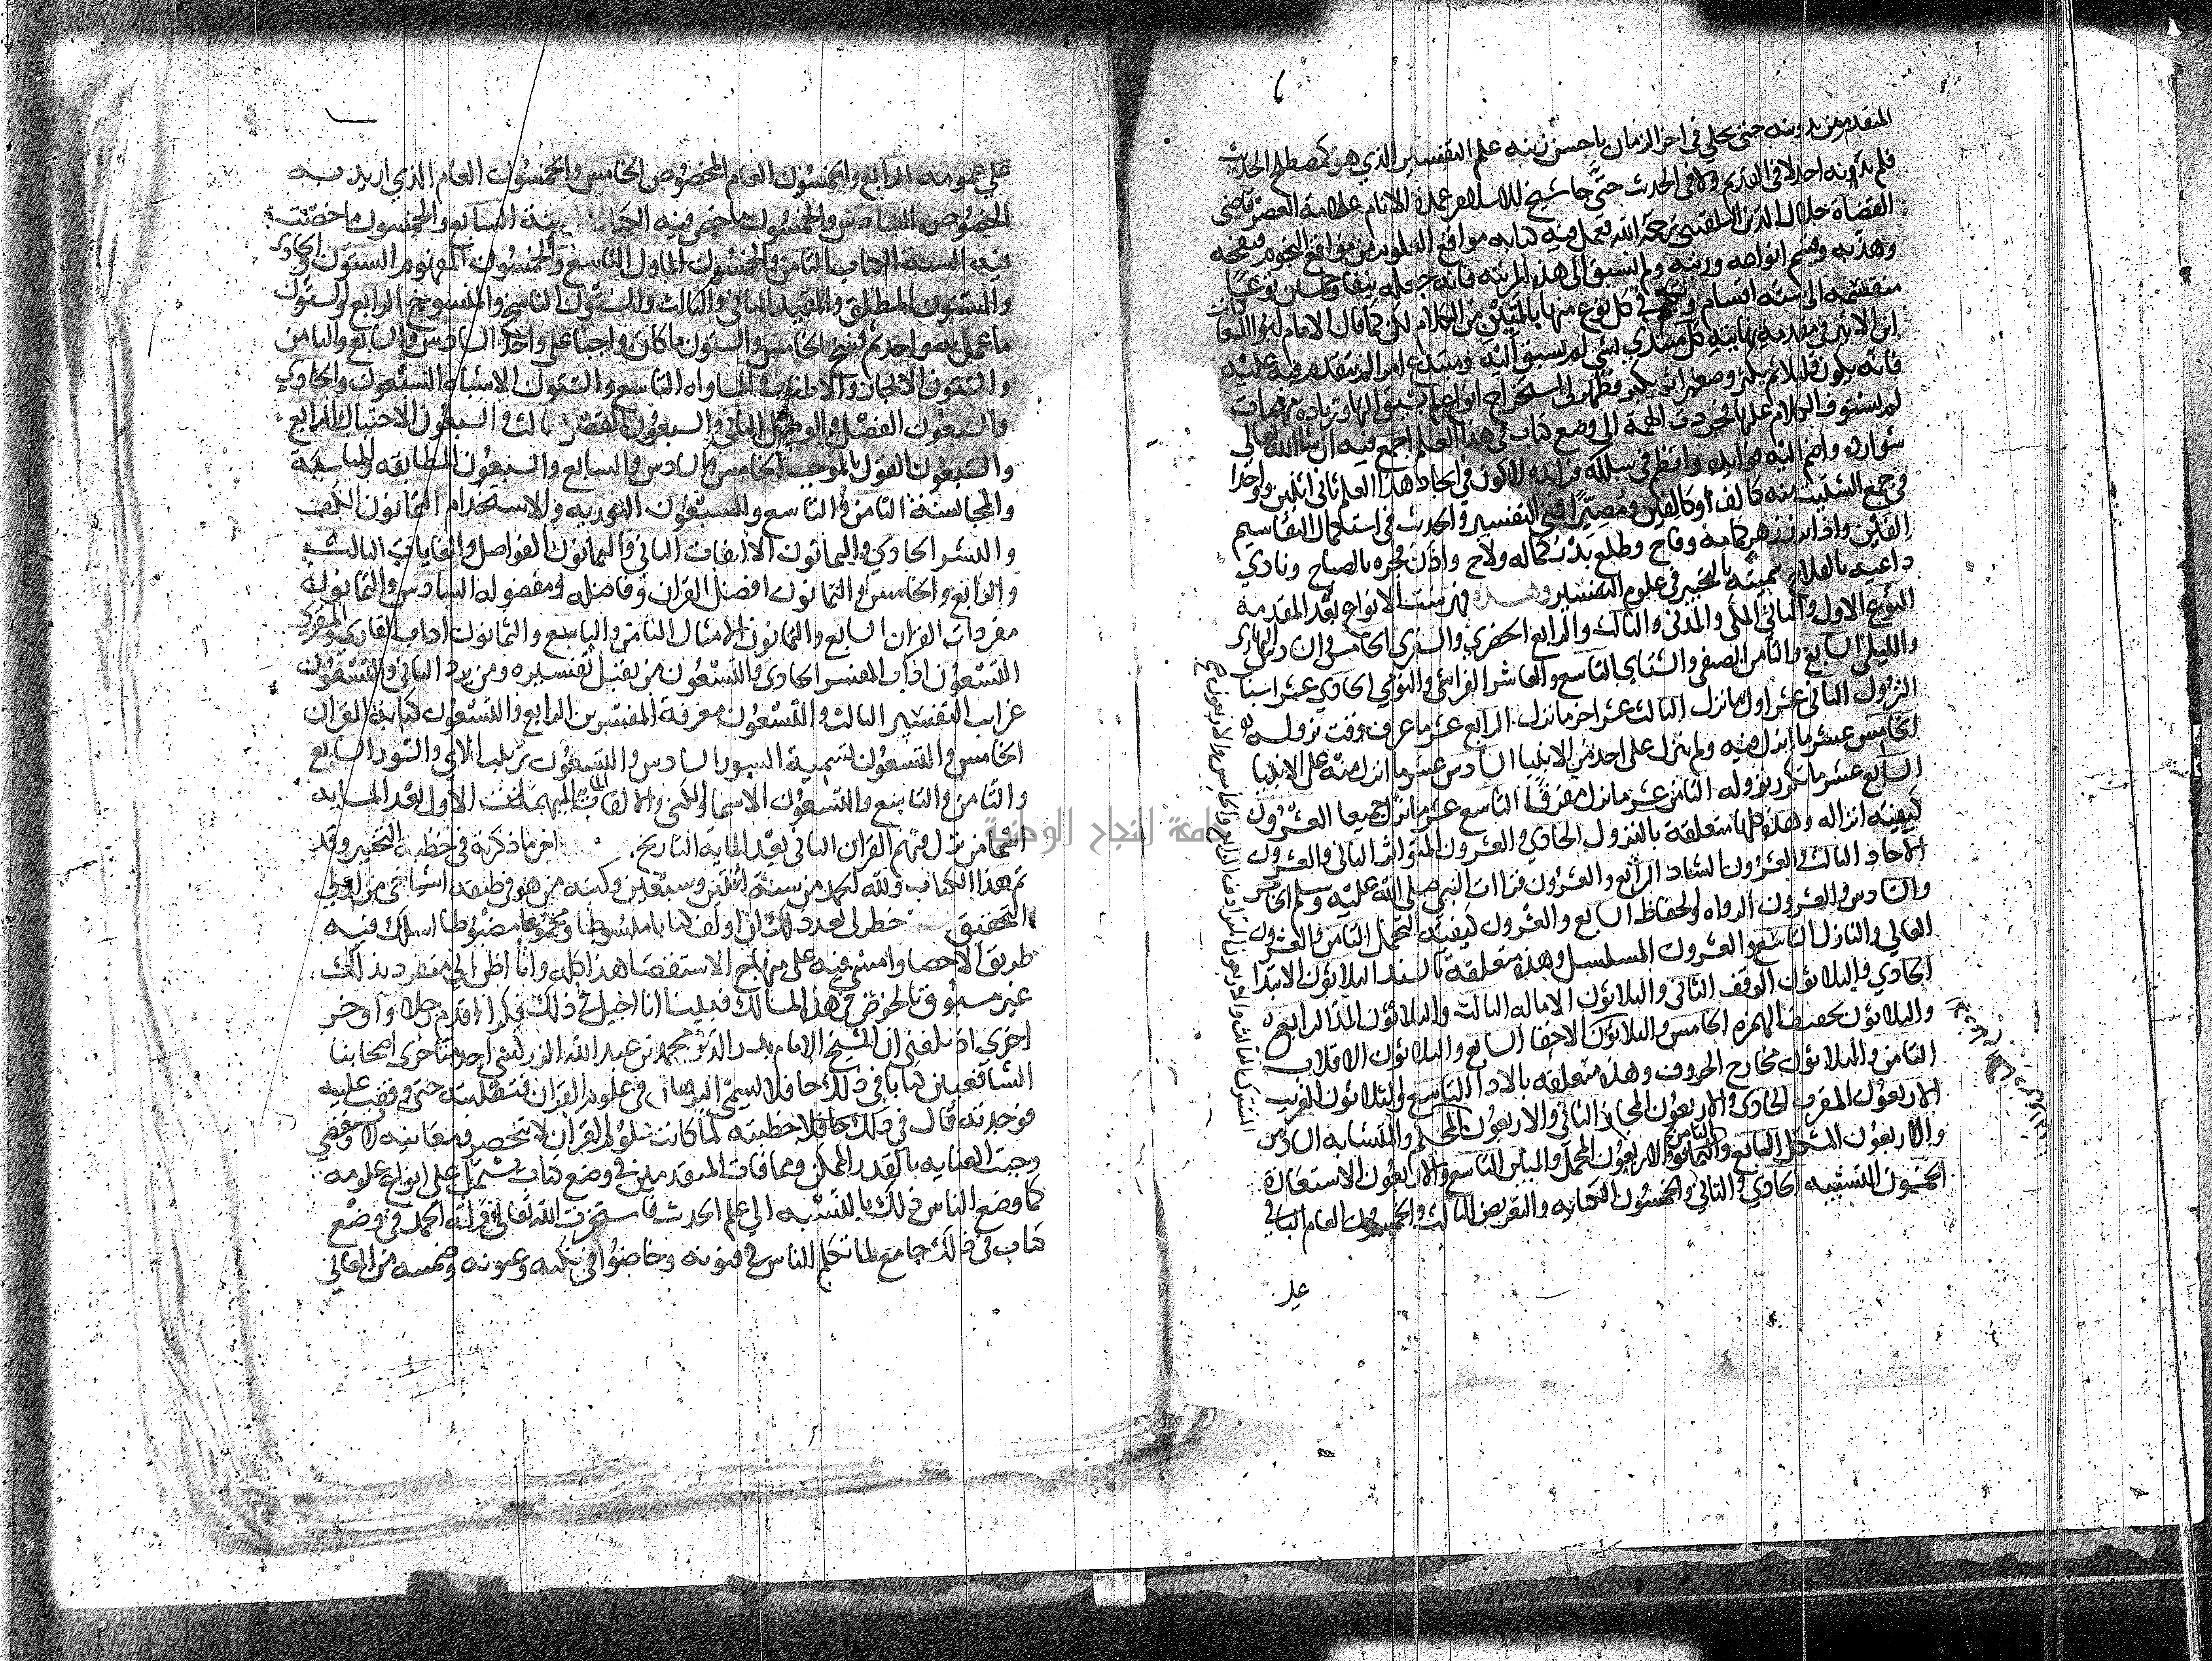 المتقدمين تدوينه حتى تحلي في اخر الزمان باحسن زينه علم التفسير الذي هو كمصطلح الحديث
فلم يدونه احد لا في القديم ولا في الحديث حتى جا شيخ الاسلام عمدة الانام علامة العصر قاضي
القضاة جلال الدين البلقيني رحمه الله فعمل فيه كتابه مواقع العلوم من مواقع النجوم فنقحه
وهذبه وقسم انواعه ورتبه ولم يسبق الى هذه المرتبه فانه جعله نيفا وخمسين نوعا
منقسمه الى سته اقسام وتكلم في كل نوع منها بالمتين من الكلام لكن كما قال الامام ابو السعادات
ابن الاثير في مقدمه نهايته كل مبتدي بشي لم يسبق اليه ومبتدع امر لم يتقدم فيه عليه
فانه يكون قليلا ثم يكثر وصغيرا ثم يكبر فظهر لي استخراج انواع لم يسبق اليها وزياده مهمات
لم يستوف الكلام عليها فجردت الهمة الى وضع كتاب في هذا العلم اجمع فيه ان شا الله تعالى
شوارده واضم اليه فوايده وانظم في سلكه فرايده لاكون في ايجاد هذا العلم ثاني اثنين وواحدا
في جمع الشتيت منه كالف او كالفين ومصيرا فني التفسير والحديث في استكمال التقاسيم
الفين واذا برز زهر كمامه وفاح وطلع بدر كماله ولاح واذن فجره بالصباح ونادي
داعيه بالفلاح سميته بالتحبير في علوم التفسير وهذه فهرست الانواع بعد المقدمة
النوع الاول والثاني المكي والمدني والثالث والرابع الحضري والسفري الخامس والسادس النهاري
والليلي السابع والثامن الصيفي والشتاي التاسع والعاشر الفراشي والنومي الحادي عشر اسباب
النزول الثاني عشر اول ما نزل الثالث عشر اخر ما نزل الرابع عشر ما عرف وقت نزوله
الخامس عشر ما انزل فيه ولم ينزل على احد من الانبيا السادس عشر ما انزل منه على الانبيا
السابع عشر ما تكرر نزوله الثامن عشر ما نزل مفرقا التاسع عشر ما نزل جميعا العشرون
كيفيه انزاله وهذه كلها متعلقة بالنزول الحادي والعشرون المتواتر الثاني والعشرون
الاحاد الثالث والعشرون الشاد الرابع والعشرون قراات النبي صلى الله عليه وسلم الخامس
والسادس والعشرون الرواه والحفاظ السابع والعشرون كيفيه التحمل الثامن والعشرون
العالي والنازل التاسع والعشرون المسلسل وهذه متعلقة بالسند الثلاثون الابتدا
الحادي والثلاثون الوقف الثاني والثلاثون الاماله الثالث والثلاثون المد الرابع
والثلاثون تخفيف الهمزه الخامس والثلاثون الادغام السادس والثلاثون الاخفا السابع والثلاثون الاقلاب
الثامن والثلاثون مخارج الحروف وهذه متعلقه بالادا التاسع والثلاثون الغريب
الاربعون المعرب الحادي والاربعون المجاز الثاني والاربعون المشترك الثالث والاربعون المترادف الرابع والخامس والاربعون المحكم والمتشابه السادس
والاربعون المشكل السابع والثامن والاربعون المجمل والمبين التاسع والاربعون الاستعارة
الخمسون التشبيه الحادي والثاني والخمسون الكنايه والتعريض الثالث والخمسون العام الباقي
على
على عمومه الرابع والخمسون العام المخصوص الخامس والخمسون العام الذي اريد به
الخصوص السادس والخمسون ما خص فيه الكتاب السنة السابع والخمسون ما خصت
فيه السنة الكتاب الثامن والخمسون الماول التاسع والخمسون المفهوم الستون والحادي
والستون المطلق والمقيد الثاني والثالث والستون الناسخ والمنسوخ الرابع والستون
ما عمل به واحد ثم نسخ الخامس والستون ما كان واجبا على واحد السادس والسابع والثامن
والستون الايجاز والاطناب والمساواه التاسع والستون الاشباه السبعون والحادي
والسبعون الفصل والوصل الثاني والسبعون القصر الثالث والسبعون الاحتباك الرابع
والسبعون القول بالموجب الخامس والسادس والسابع والسبعون المطابقه والمناسبة
والمجانسة الثامن والتاسع والسبعون التوريه والاستخدام الثمانون اللف
والنشر الحادي والثمانون الالتفات الثاني والثمانون الفواصل والغايات الثالث
والرابع والخامس والثمانون افضل القران وفاضله ومفضوله السادس والثمانون
مفردات القران السابع والثمانون الامثال الثامن والتاسع والثمانون اداب القاري والمقري
التسعون اداب المفسر الحادي والتسعون من يقبل تفسيره ومن يرد الثاني والتسعون
غرايب التفسير الثالث والتسعون معرفة المفسرين الرابع والتسعون كتابة القران
الخامس والتسعون تسمية السور السادس والتسعون ترتيب الاي والسور السابع
والثامن والتاسع والتسعون الاسما والكنى والالقاب المايه المبهمات الاول بعد المايه
اسما من نزل فيهم القران الثاني بعد المايه التاريخ اخر ما ذكرته في خطبة التحبير وقد
تم هذا الكتاب ولله الحمد من سنة اثنتين وسبعين وكتبه من هو في طبقه اشياخي من اولي
التحقيق خطر لي بعد ذلك ان اولف كتابا مبسوطا ومجموعا مضبوطا اسلك فيه
طريق الاحصا وامشي فيه على منهاج الاستقصا هذا كله وانا اظن اني متفرد بذلك
غير مسبوق بالخوض في هذه المسالك فبينا انا اجيل في ذلك فكرا اقدم رجلا واوخر
اخرى اذ بلغني ان الشيخ الامام بدر الدين محمد بن عبد الله الزركشي احد متاخري اصحابنا
الشافعيين كتابا في ذلك حافلا يسمى البرهان في علوم القران فتطلبته حتى وقفت عليه
فوجدته قال في خطبته لما كانت علوم القران لا تنحصر ومعانيه لا تستقصي
وجبت العنايه بالقدر الممكن ومما فات المتقدمين وضع كتاب يشتمل على انواع علومه
كما وضع الناس ذلك بالنسبه الى علم الحديث فاستخرت الله تعالى وله الحمد في وضع
كتاب في ذلك جامع لما تكلم الناس في فنونه وخاضوا في نكته وعيونه وضمنته من المعاني